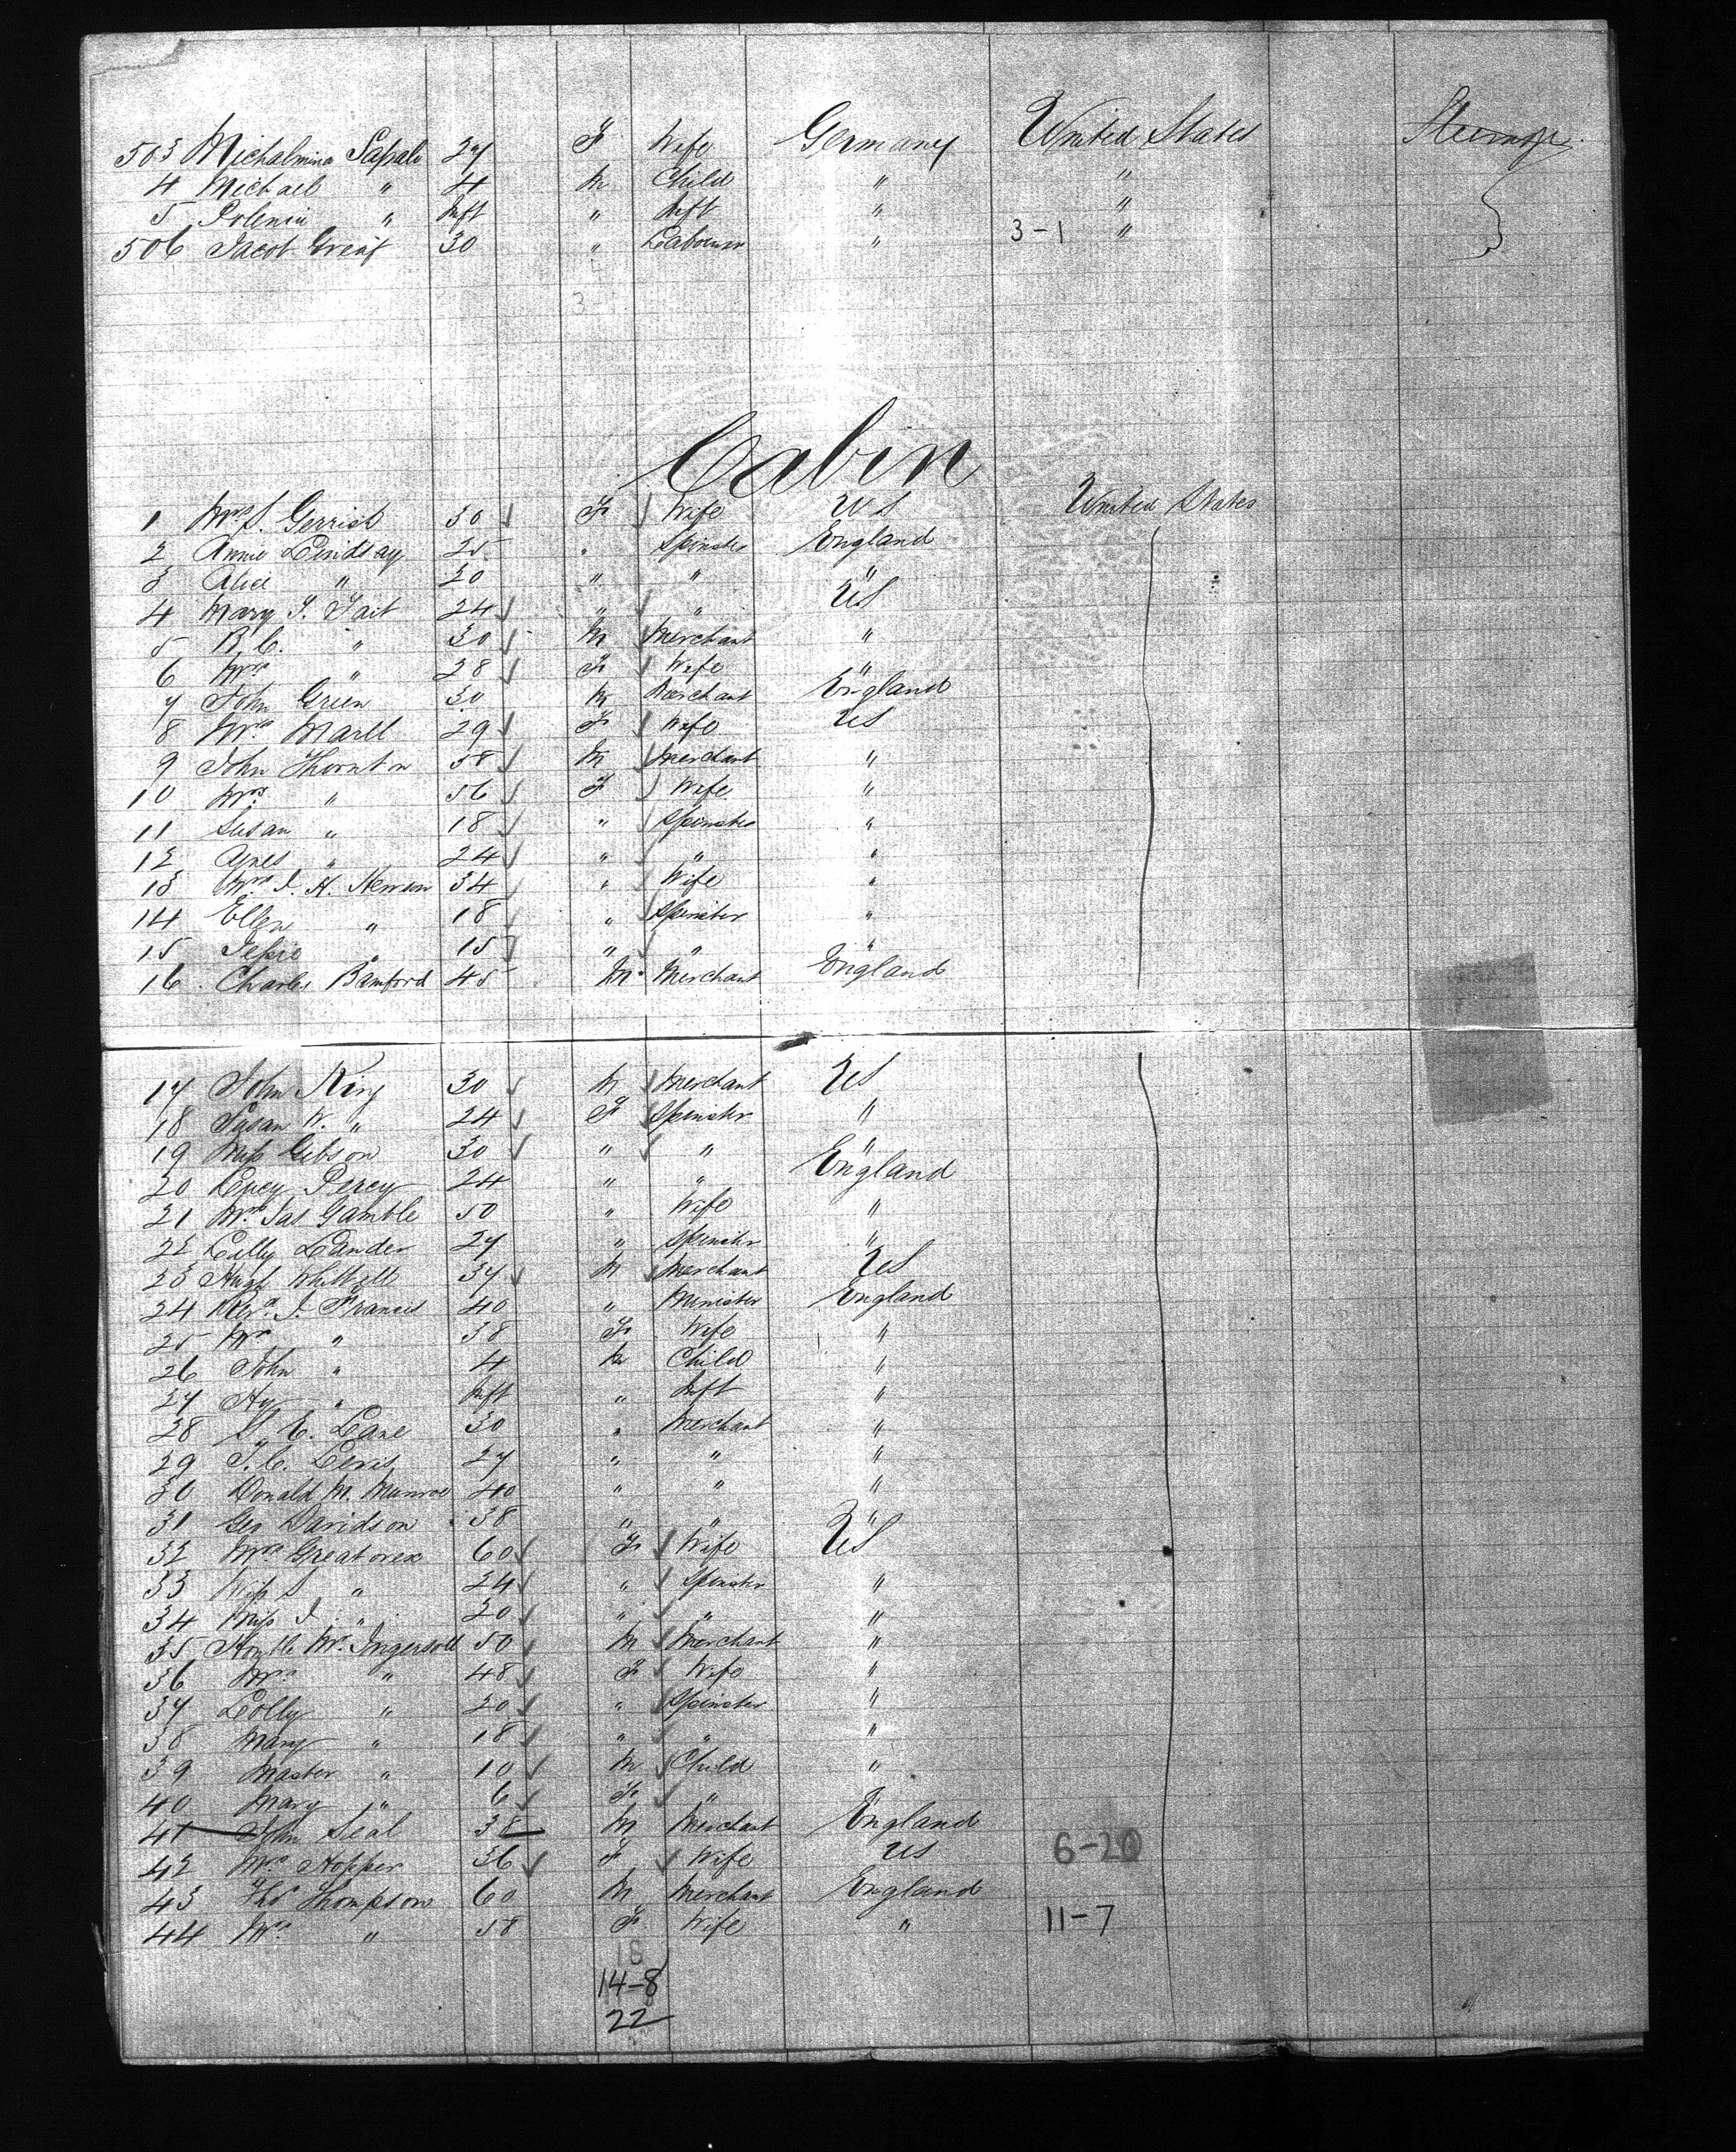 503 Michalmina Sapalo 27 F Wife Germany United States
4 Michael " 4 M Child " "
5 " Inft " Inft " "
506 Jacob Greif 30 " Labourer " 3-1 "
Cabin
1 Mrs S. Gerrish 30 F Wife US United States
2 Annie Lindsay 25 " Spinster England
3 Alice " 20 " " "
4 Mary J. Tait 24 " " US
5 R. C. " 30 M Merchant "
6 Mrs " 28 F Wife "
7 John Green 30 M Merchant England
8 Mrs Marll 29 F Wife US
9 John Thornton 58 M Merchant "
10 Mrs " 56 F Wife "
11 Susan " 18 " Spinster "
12 Agnes " 24 " " "
13 Mrs J. H. 34 " Wife "
14 Ellen " 18 " Spinster "
15 Jessie " 15 " " "
16 Charles Bamford 45 M Merchant England
17 John King 30 M Merchant US
18 Susan W. " 24 F Spinster "
19 Miss Gibson 30 " " "
20 Lucy Percy 24 " " England
21 Mrs Jas Gamble 50 " Wife "
22 Lilly Lander 27 " Spinster "
23 Hugh Whittell 37 M Merchant US
24 Revd. J. Francis 40 " Minister England
25 Mrs " 38 F Wife "
26 John " 4 M Child "
27 Hy " Inft " Inft "
28 S. C. Lane 30 " Merchant "
29 T. C. 27 " " "
30 Donald M. Munroe 40 " " "
31 Geo Davidson 38 " " "
32 Mrs Greatorex 60 F Wife US
33 Miss S " 24 " Spinster "
34 Miss J " 20 " " "
35 Honble Mr. Ingersoll 50 M Merchant "
36 Mrs " 48 F Wife "
37 Lolly " 20 " Spinster "
38 Mary " 18 " " "
39 Master " 10 M Child "
40 Mary " 6 F " "
41 John Seal 38 M Merchant England
42 Mrs Hopper 36 F Wife US 6-20
43 Thos Thompson 60 M Merchant England
44 Mrs " 58 F Wife " 11-7
18
14-8
22